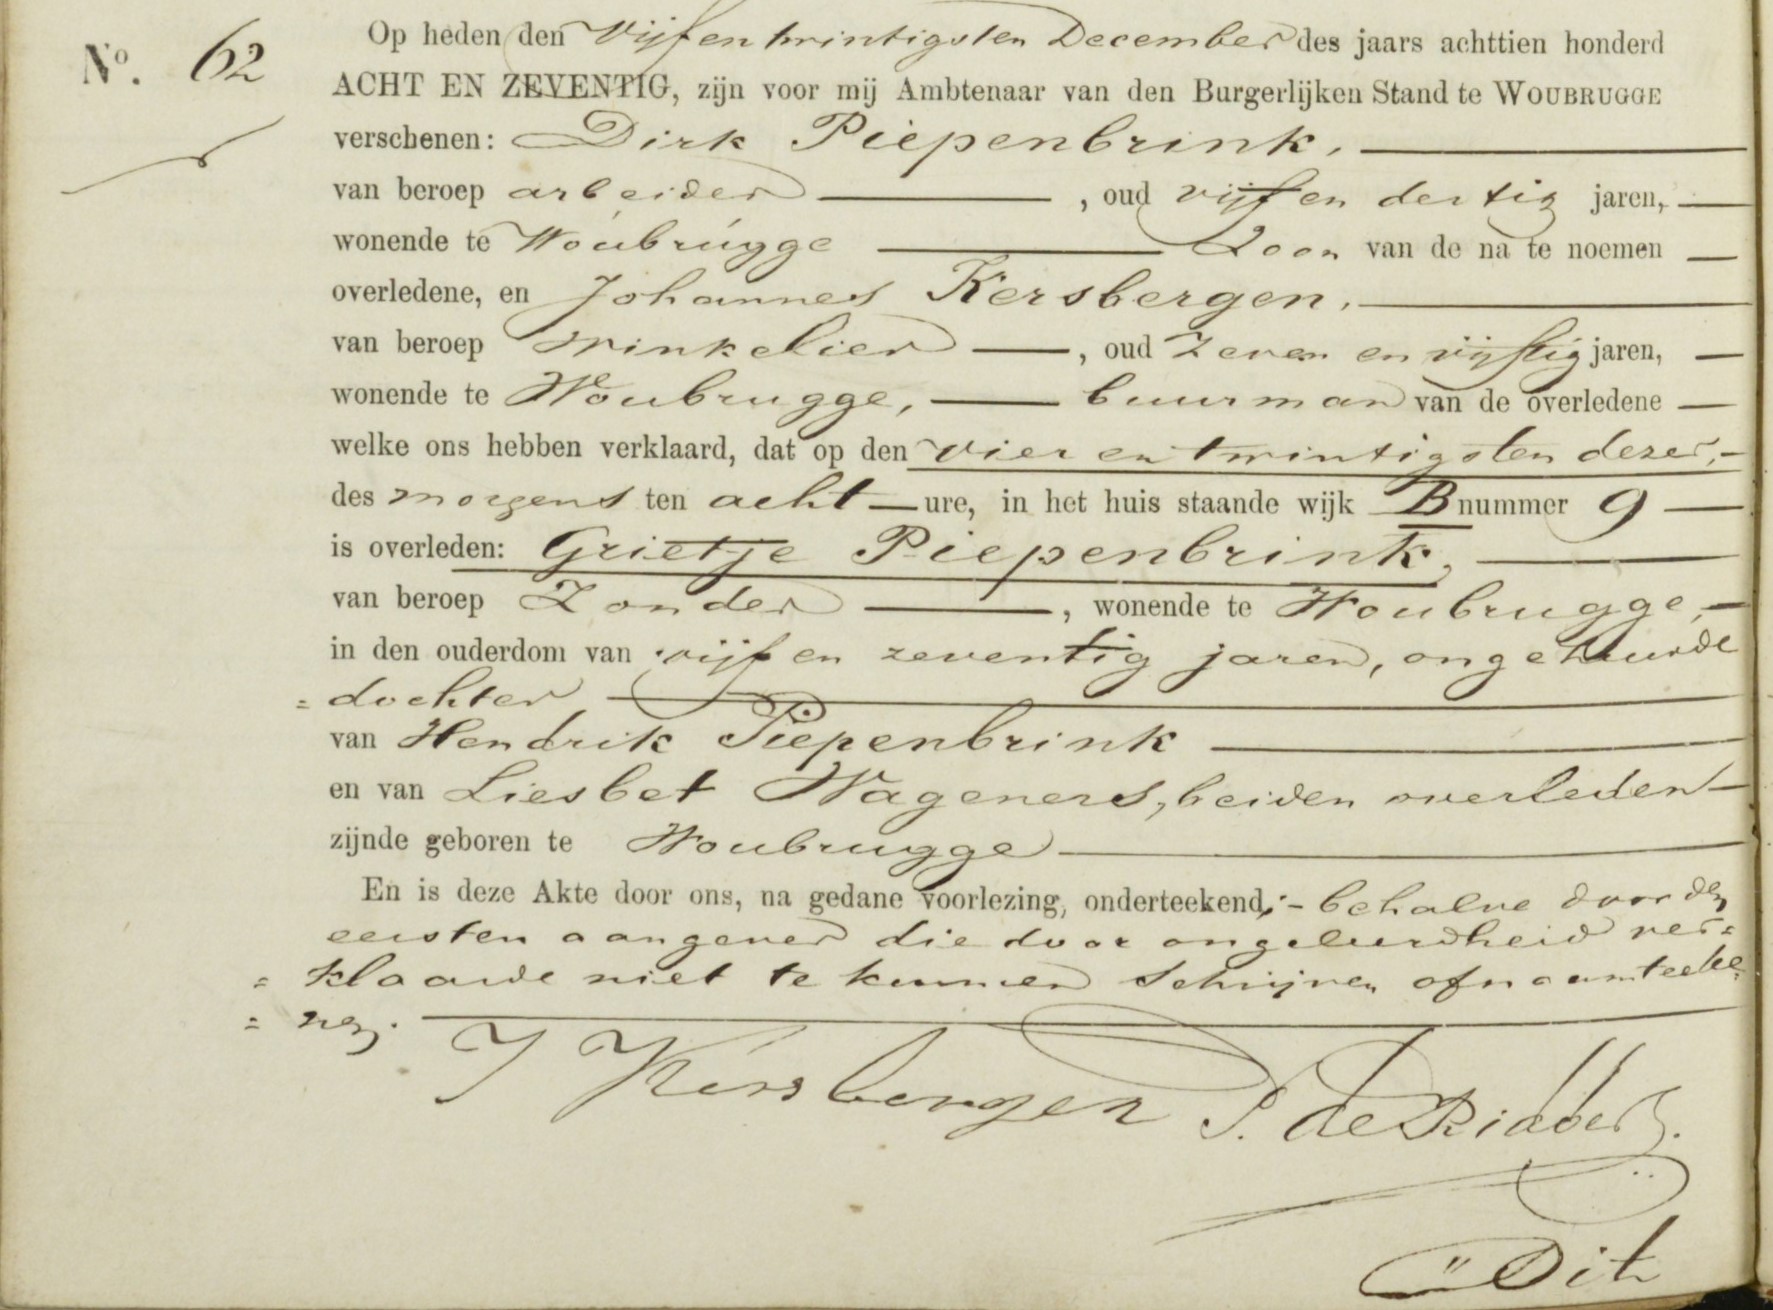 No. 62
Op heden den Vijfentwintigsten December des jaars achttien honderd
ACHT EN ZEVENTIG, zijn voor mij Ambtenaar van den Burgerlijken Stand te WOUBRUGGE
verschenen: Dirk Piepenbrink,
van beroep arbeider, oud vijf en dertig jaren,
wonende te Woubrugge Zoon van de na te noemen
overledene, en Johannes Kersbergen,
van beroep Winkelier, oud Zeven en vijftig jaren,
wonende te Woubrugge, buurman van de overledene
welke ons hebben verklaard, dat op den vier en twintigsten dezer,
des morgens ten acht ure, in het huis staande wijk B nummer 9
is overleden: Grietje Piepenbrink,
van beroep Zonder, wonende te Woubrugge,
in den ouderdom van vijf en zeventig jaren, ongehuwde
= dochter
van Hendrik Piepenbrink
en van Liesbet Wageners, beiden overleden
zijnde geboren te Woubrugge
En is deze Akte door ons, na gedane voorlezing, onderteekend, - behalve door den
eersten aangever die door ongeleerdheid ver=
= klaarde niet te kunnen Schrijven of naamteeke=
= nen.
J Kersbergen P. de Ridder
" Dit